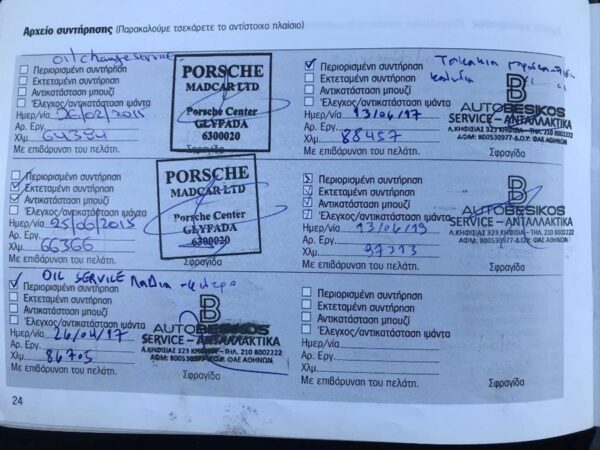 Αρχείο συντήρησης (Παρακαλούμε τσεκάρετε το αντίστοιχο πλαίσιο)
oil change service
Περιορισμένη συντήρηση
Εκτεταμένη συντήρηση
Αντικατάσταση μπουζί
Έλεγχος/αντικατάσταση ιμάντα
Ημερ/νία 26/02/2015
Αρ. Εργ.
Χλμ. 64384
Με επιβάρυνση του πελάτη.
Σφραγίδα
PORSCHE
MADCAR LTD
Porsche Center
GLYFADA
6300020
Περιορισμένη συντήρηση
Εκτεταμένη συντήρηση
Αντικατάσταση μπουζί
Έλεγχος/αντικατάσταση ιμάντα
Ημερ/νία 25/06/2015
Αρ. Εργ.
Χλμ. 66366
Με επιβάρυνση του πελάτη.
Σφραγίδα
PORSCHE
MADCAR LTD
Porsche Center
GLYFADA
6300020
OIL SERVICE λαδια
Περιορισμένη συντήρηση
Εκτεταμένη συντήρηση
Αντικατάσταση μπουζί
Έλεγχος/αντικατάσταση ιμάντα
Ημερ/νία 26/04/17
Αρ. Εργ.
Χλμ. 86705
Με επιβάρυνση του πελάτη.
Σφραγίδα
B
AUTOBESIKOS
SERVICE - ΑΝΤΑΛΛΑΚΤΙΚΑ
Λ.ΚΗΦΙΣΙΑΣ 323 ΚΗΦΙΣΙΑ - ΤΗΛ. 210 8002222
ΑΦΜ: 800530977-Δ.Ο.Υ: ΦΑΕ ΑΘΗΝΩΝ
Περιορισμένη συντήρηση
Εκτεταμένη συντήρηση
Αντικατάσταση μπουζί
Έλεγχος/αντικατάσταση ιμάντα
Ημερ/νία 13/06/17
Αρ. Εργ.
Χλμ. 88457
Με επιβάρυνση του πελάτη.
Σφραγίδα
B
AUTOBESIKOS
SERVICE - ΑΝΤΑΛΛΑΚΤΙΚΑ
Λ.ΚΗΦΙΣΙΑΣ 323 ΚΗΦΙΣΙΑ - ΤΗΛ. 210 8002222
ΑΦΜ: 800530977-Δ.Ο.Υ: ΦΑΕ ΑΘΗΝΩΝ
Περιορισμένη συντήρηση
Εκτεταμένη συντήρηση
Αντικατάσταση μπουζί
Έλεγχος/αντικατάσταση ιμάντα
Ημερ/νία 13/04/19
Αρ. Εργ.
Χλμ. 97213
Με επιβάρυνση του πελάτη.
Σφραγίδα
B
AUTOBESIKOS
SERVICE - ΑΝΤΑΛΛΑΚΤΙΚΑ
Λ.ΚΗΦΙΣΙΑΣ 323 ΚΗΦΙΣΙΑ - ΤΗΛ. 210 8002222
ΑΦΜ: 800530977-Δ.Ο.Υ: ΦΑΕ ΑΘΗΝΩΝ
Περιορισμένη συντήρηση
Εκτεταμένη συντήρηση
Αντικατάσταση μπουζί
Έλεγχος/αντικατάσταση ιμάντα
Ημερ/νία
Αρ. Εργ.
Χλμ.
Με επιβάρυνση του πελάτη.
Σφραγίδα
24